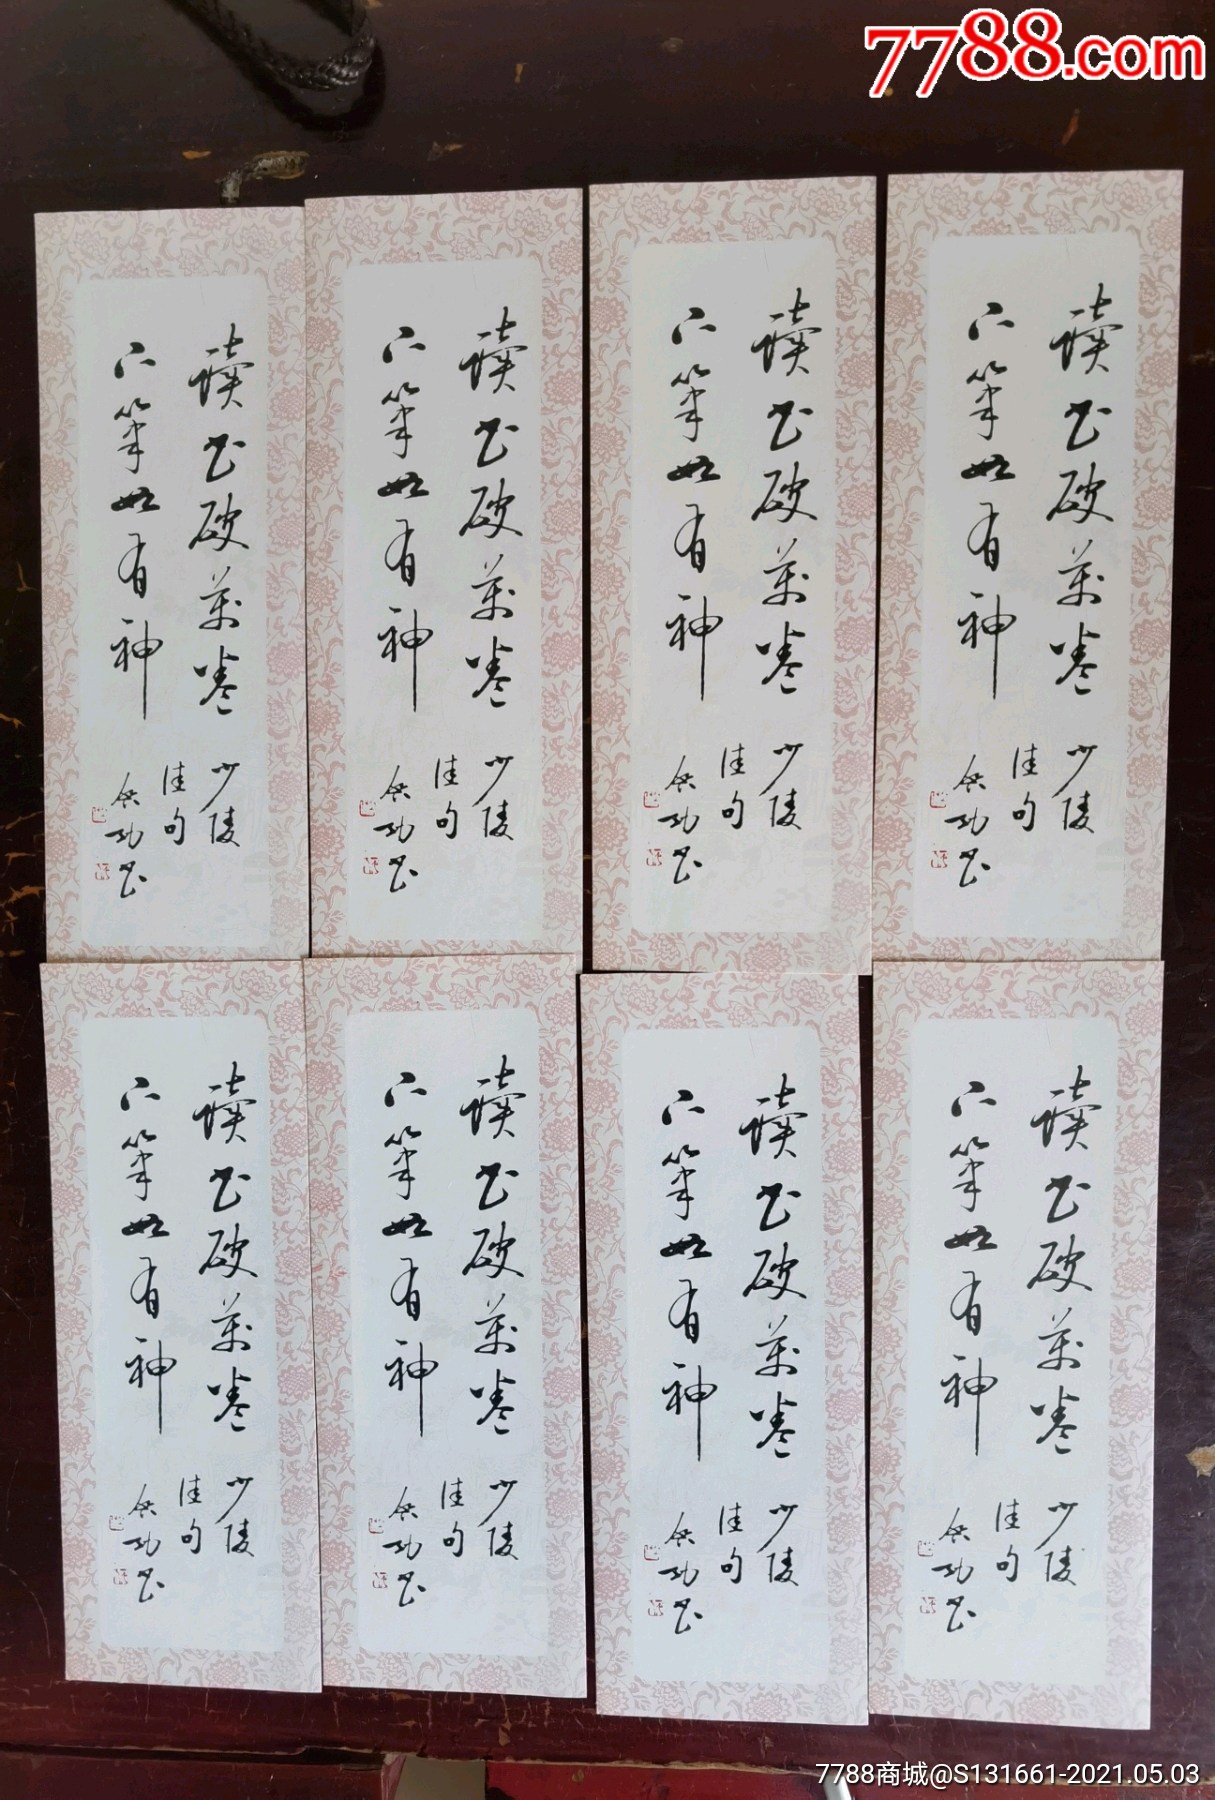 7788.com
讀书破萬卷
下筆如有神
少陵
佳句
启功书
讀书破萬卷
下筆如有神
少陵
佳句
启功书
讀书破萬卷
下筆如有神
少陵
佳句
启功书
讀书破萬卷
下筆如有神
少陵
佳句
启功书
讀书破萬卷
下筆如有神
少陵
佳句
启功书
讀书破萬卷
下筆如有神
少陵
佳句
启功书
讀书破萬卷
下筆如有神
少陵
佳句
启功书
讀书破萬卷
下筆如有神
少陵
佳句
启功书
7788商城@S131661-2021.05.03